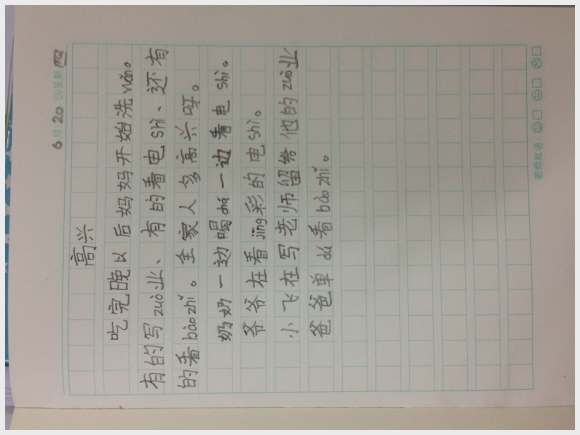 6月20日星期四
高兴
吃完晚以后妈妈开始洗wǎn。
有的写zuò业、有的看电shì、还有
的看bàozhǐ。全家人多高兴呀。
奶奶一边喝chá一边看电shì。
爷爷在看jīng彩的电shì。
小飞在写老师留给他的zuò业
爸爸单
看bàozhǐ。
老师的话